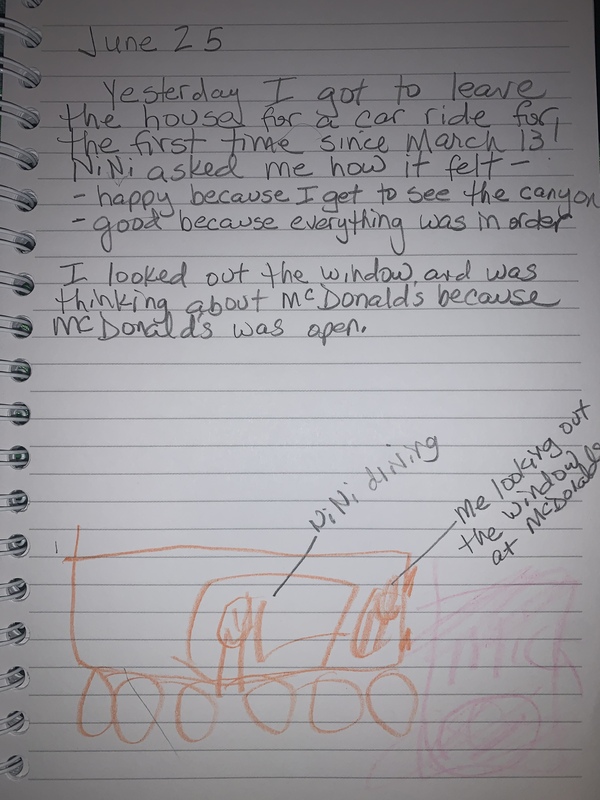 June 25
Yesterday I got to leave
the house for a car ride for
the first time since March 13!
NiNi asked me how it felt -
- happy because I get to see the canyon
- good because everything was in order
I looked out the window and was
thinking about McDonald's because
McDonald's was open.
NiNi driving
me looking out
the window
at McDonalds